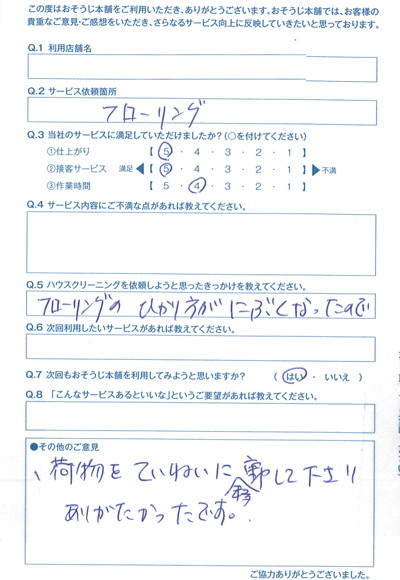 この度はおそうじ本舗をご利用いただき、ありがとうございます。おそうじ本舗では、お客様の
貴重なご意見・ご感想をいただき、さらなるサービス向上に反映していきたいと思っております。
Q.1 利用店舗名
Q.2 サービス依頼箇所
フローリング
Q.3 当社のサービスに満足していただけましたか？(○を付けてください)
①仕上がり 【 5 ・ 4 ・ 3 ・ 2 ・ 1 】
②接客サービス 満足◀【 5 ・ 4 ・ 3 ・ 2 ・ 1 】▶不満
③作業時間 【 5 ・ 4 ・ 3 ・ 2 ・ 1 】
Q.4 サービス内容にご不満な点があれば教えてください。
Q.5 ハウスクリーニングを依頼しようと思ったきっかけを教えてください。
フローリングの ひかり方がにぶくなったので
Q.6 次回利用したいサービスがあれば教えてください。
Q.7 次回もおそうじ本舗を利用してみようと思いますか？ ( はい ・ いいえ )
Q.8 「こんなサービスあるといいな」というご要望があれば教えてください。
●その他のご意見
、荷物をていねいに移動して下さり
ありがたかったです。
ご協力ありがとうございました。